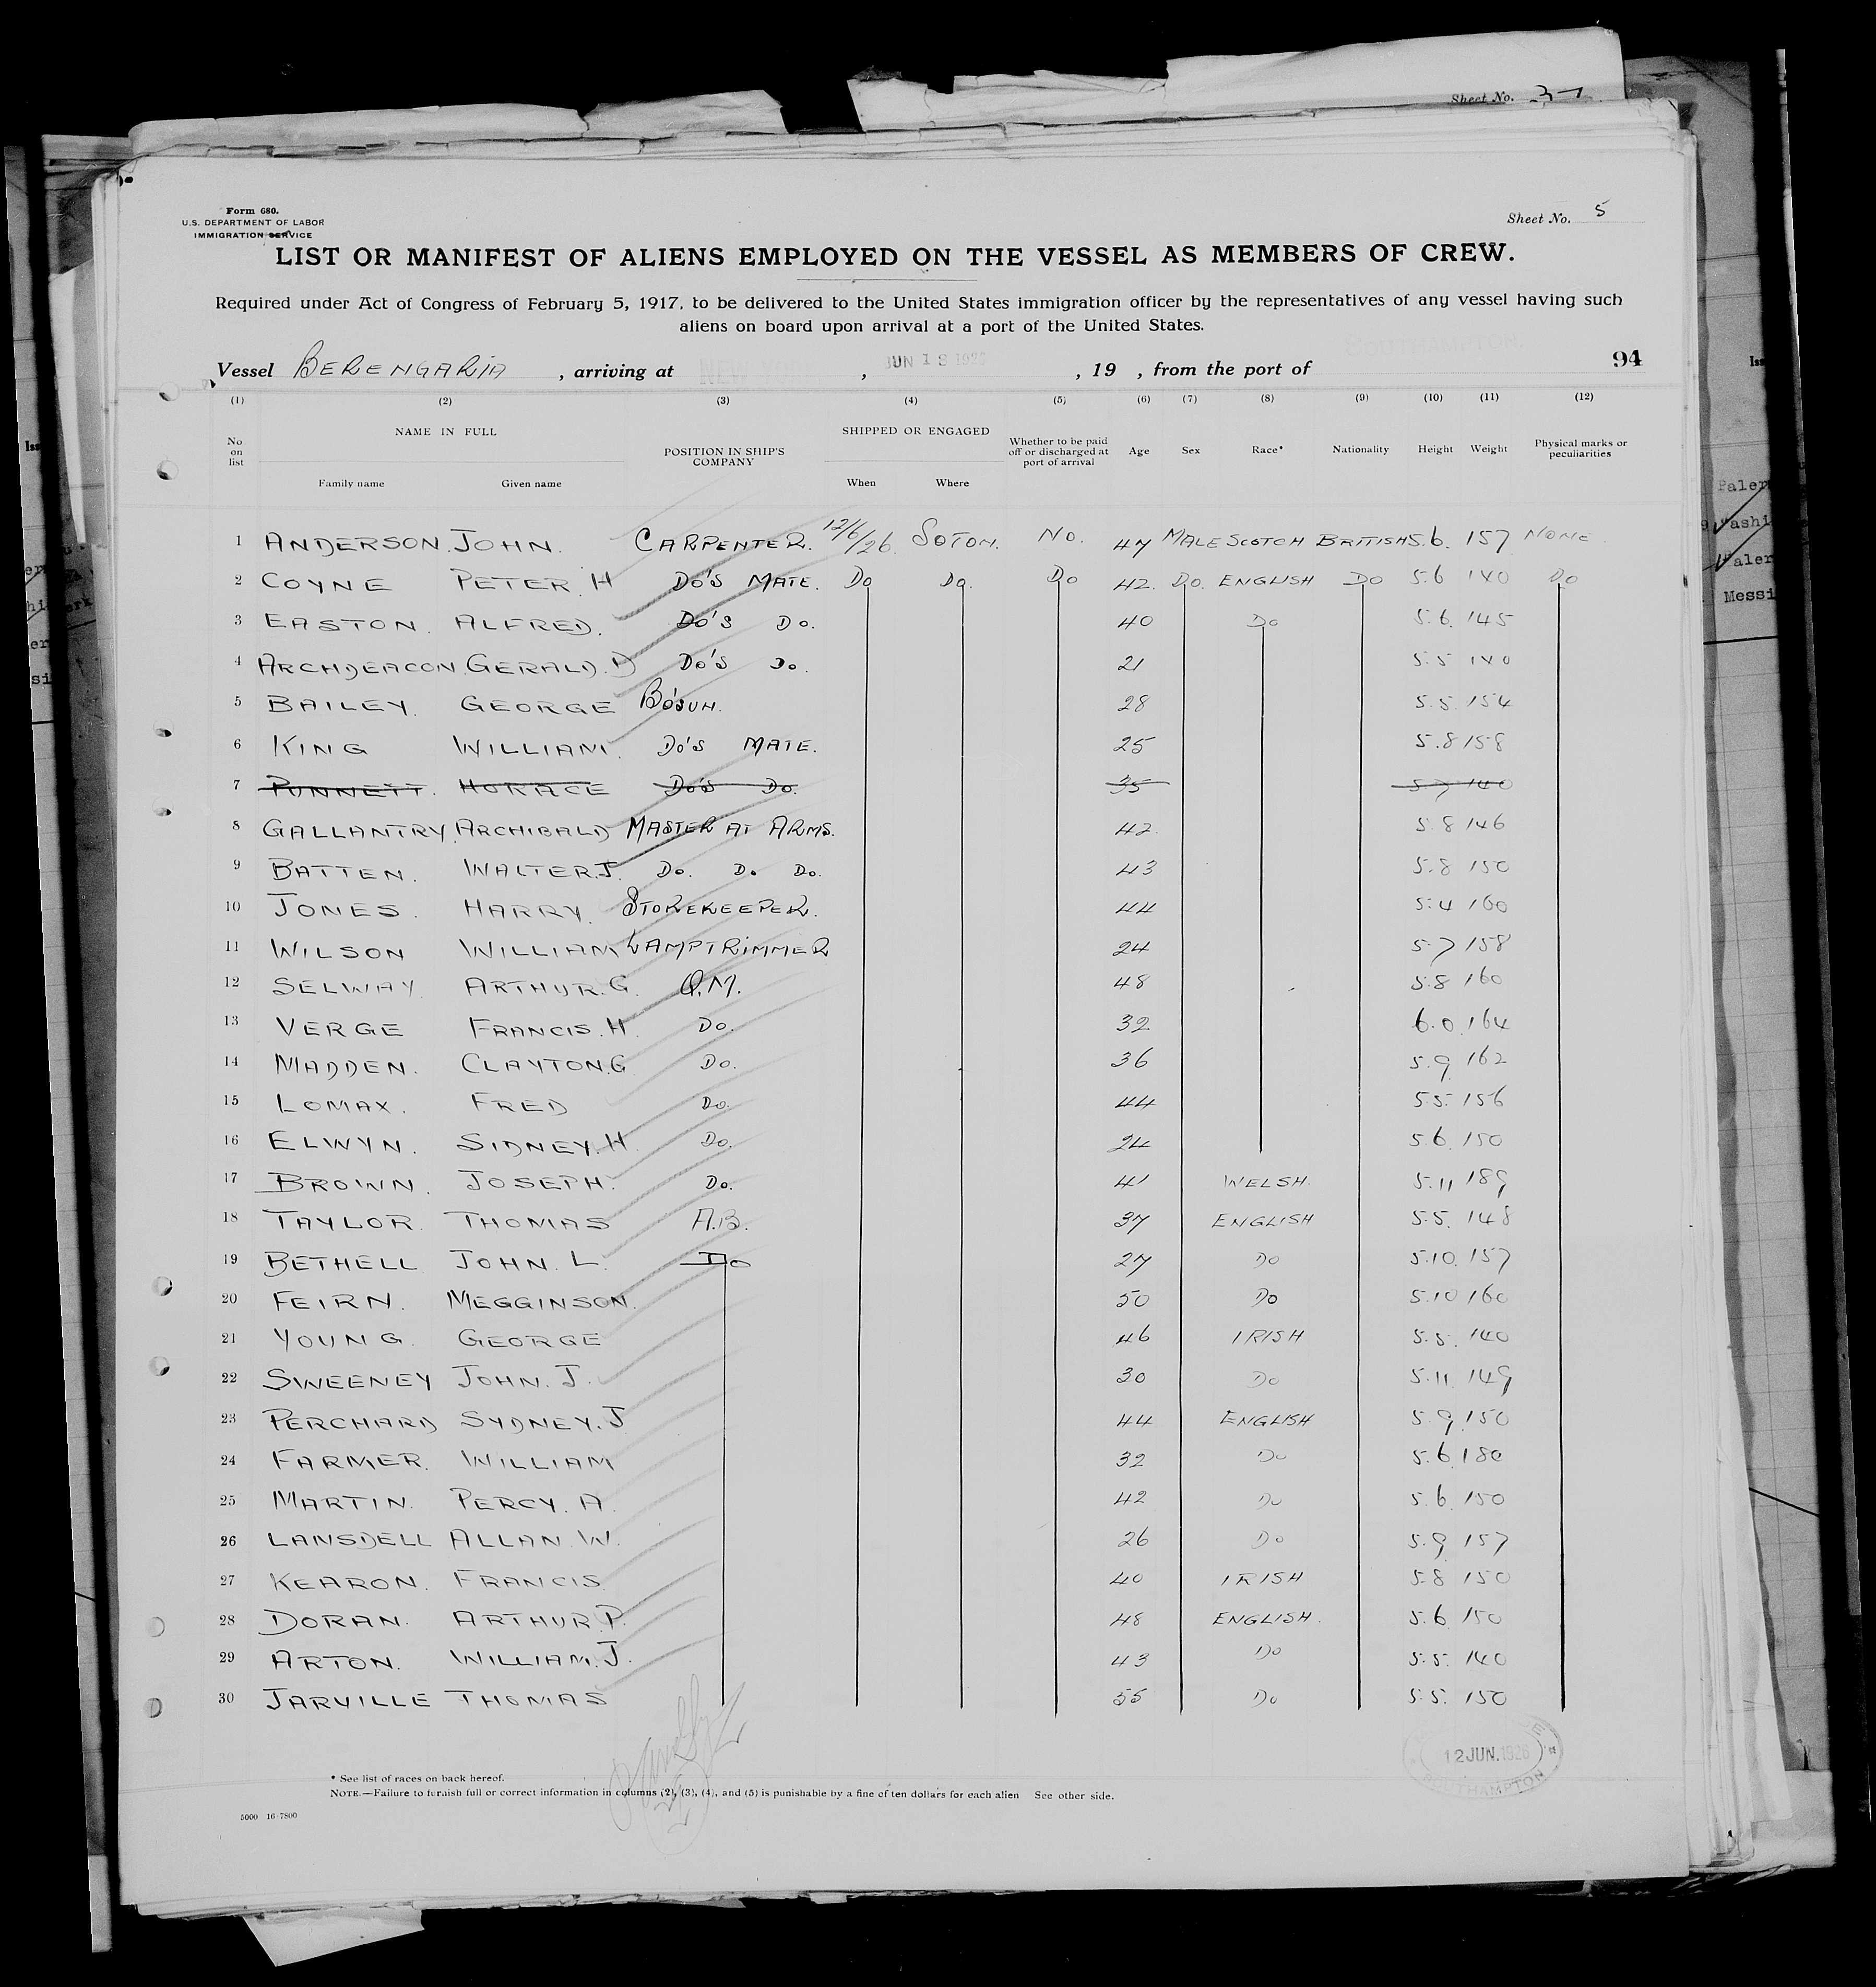 Sheet No. 37
Form 680.
U.S. DEPARTMENT OF LABOR
IMMIGRATION SERVICE
Sheet No. 5
LIST OR MANIFEST OF ALIENS EMPLOYED ON THE VESSEL AS MEMBERS OF CREW.
Required under Act of Congress of February 5, 1917, to be delivered to the United States immigration officer by the representatives of any vessel having such
aliens on board upon arrival at a port of the United States.
Vessel BERENGARIA , arriving at NEW YORK , JUN 18 1926 , 19 , from the port of SOUTHAMPTON. 94
(1) (2) (3) (4) (5) (6) (7) (8) (9) (10) (11) (12)
No on list NAME IN FULL Family name Given name POSITION IN SHIP'S COMPANY SHIPPED OR ENGAGED When Where Whether to be paid off or discharged at port of arrival Age Sex Race* Nationality Height Weight Physical marks or peculiarities
1 ANDERSON JOHN. CARPENTER. 12/6/26. SOTON. NO. 47 MALE SCOTCH BRITISH 5.6. 157 NONE
2 COYNE PETER. H DO'S MATE. DO DO. DO 42. DO. ENGLISH DO 5.6 140 DO
3 EASTON. ALFRED. DO'S DO. 40 DO 5.6. 145
4 ARCHDEACON. GERALD. D DO'S DO. 21 5.5 140
5 BAILEY. GEORGE BO'SUN. 28 5.5. 154
6 KING WILLIAM. DO'S MATE. 25 5.8 158
7 PUNNETT. HORACE DO'S DO. 35 5.7 140
8 GALLANTRY. ARCHIBALD MASTER AT ARMS. 42. 5.8 146
9 BATTEN. WALTER.J. DO. DO DO. 43 5.8 150
10 JONES. HARRY. STOREKEEPER. 44 5.4 160
11 WILSON WILLIAM LAMPTRIMMER 24 5.7 158
12 SELWAY. ARTHUR.G. Q.M. 48 5.8 160
13 VERGE FRANCIS.H. DO. 32 6.0. 164
14 MADDEN. CLAYTON.G DO. 36 5.9. 162
15 LOMAX. FRED DO. 44 5.5. 156
16 ELWYN. SIDNEY.H. DO. 24 5.6. 150
17 BROWN. JOSEPH. DO. 41 WELSH. 5.11 189
18 TAYLOR. THOMAS A.B. 37 ENGLISH 5.5. 148
19 BETHELL JOHN. L. DO 27 DO 5.10. 157
20 FEIRN. MEGGINSON. 50 DO 5.10 160
21 YOUNG. GEORGE 46 IRISH 5.5. 140
22 SWEENEY JOHN. J. 30 DO 5.11. 149
23 PERCHARD SYDNEY. J 44 ENGLISH 5.9. 150
24 FARMER. WILLIAM 32 DO 5.6. 180
25 MARTIN. PERCY. A. 42 DO 5.6. 150
26 LANSDELL ALLAN. W. 26 DO 5.9. 157
27 KEARON. FRANCIS. 40 IRISH 5.8 150
28 DORAN. ARTHUR.P. 48 ENGLISH. 5.6. 150
29 ARTON. WILLIAM.J. 43 DO 5.5. 140
30 JARVILLE THOMAS 55 DO 5.5. 150
12 JUN. 1926
SOUTHAMPTON
* See list of races on back hereof.
NOTE.—Failure to furnish full or correct information in columns (2), (3), (4), and (5) is punishable by a fine of ten dollars for each alien See other side.
5000 16-7800
Messi